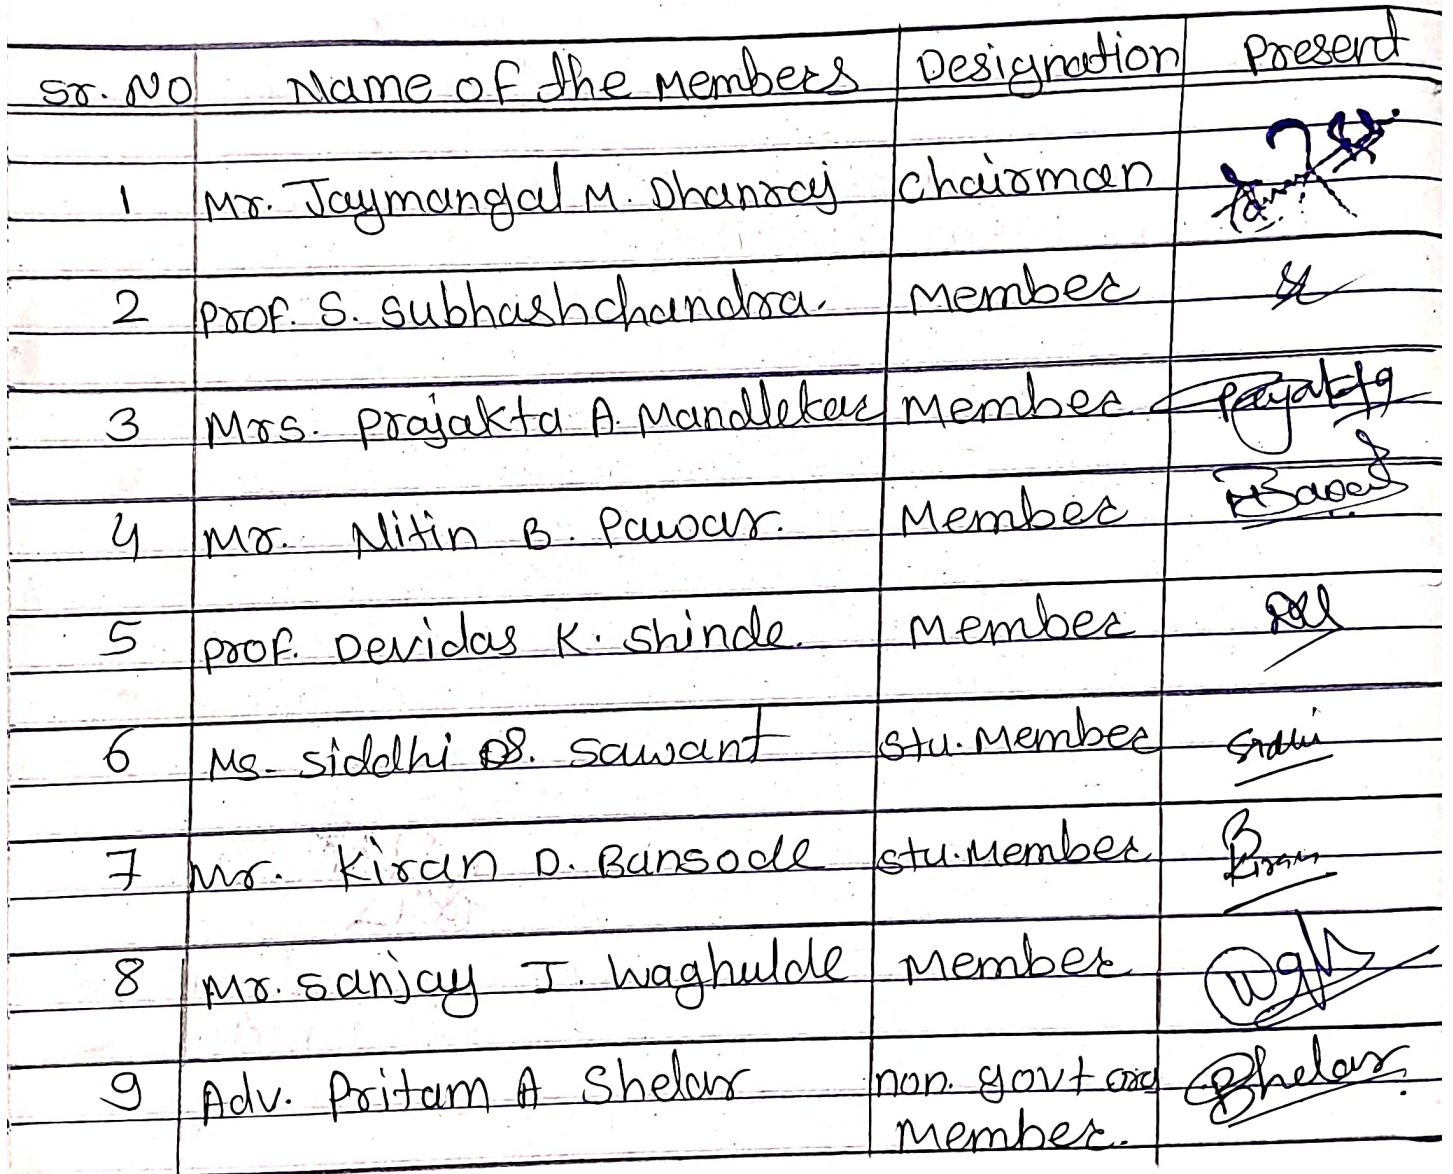 Sr. No Name of the Members Designation Present
1 Mr. Jaymangal M. Dhanraj Chairman
2 Prof. S. Subhashchandra. Member
3 Mrs. Prajakta A. Mandlekar Member Prajakta
4 Mr. Nitin B. Pawar. Member
5 Prof. Devidas K. Shinde. Member
6 Ms. Siddhi S. Sawant Stu. Member Siddhi
7 Mr. Kiran D. Bansode Stu. Member Kiran
8 Mr. Sanjay J. Waghulde Member
9 Adv. Pritam A Shelar non. govt org
Member.